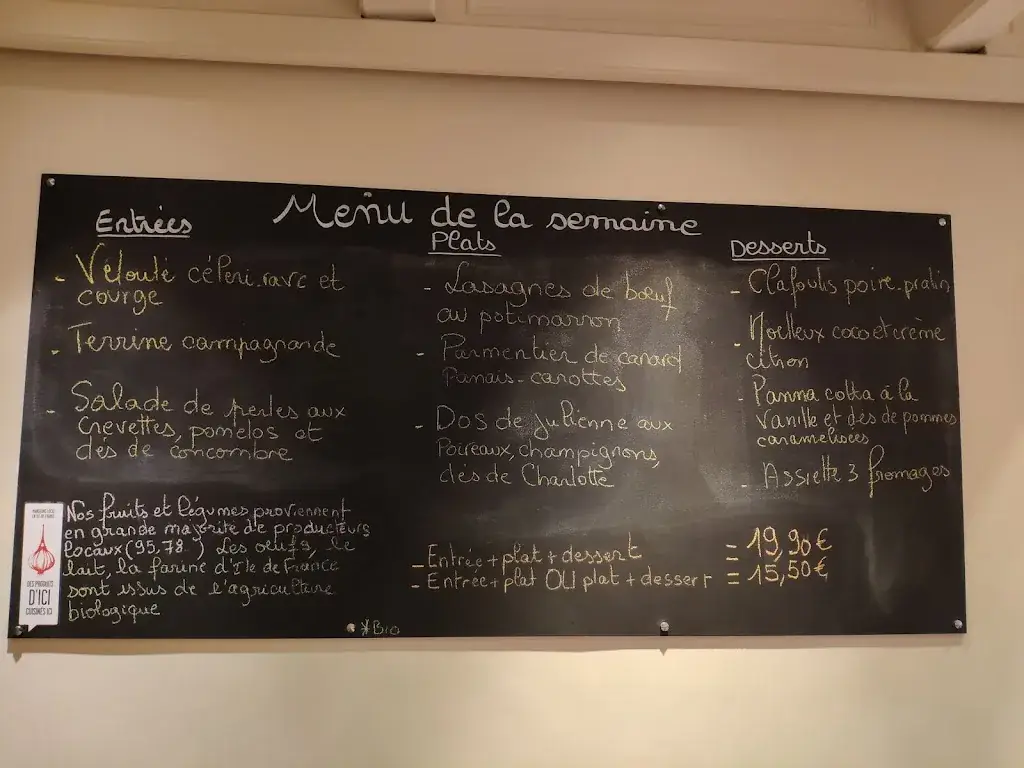 Menu de la semaine
Entrées
- Velouté céleri-rave et
courge
- Terrine campagnarde
- Salade de perles aux
crevettes, pomelos et
dés de concombre
Plats
- Lasagnes de bœuf
au potimarron
- Parmentier de canard
Panais-carottes
- Dos de julienne aux
Poireaux, champignons,
dés de Charlotte
Desserts
- Clafoutis poire-pralin
- Moelleux coco et crème
citron
- Panna cotta à la
Vanille et dés de pommes
caramelisées
- Assiette 3 fromages
Nos fruits et légumes proviennent
en grande majorité de producteurs
locaux (95,78 ) Les œufs, le
lait, la farine d'Ile de France
sont issus de l'agriculture
biologique
*Bio
- Entrée + plat + dessert = 19,90 €
- Entrée + plat OU plat + dessert = 15,50 €
DES PRODUITS
D'ICI
CUISINÉS ICI